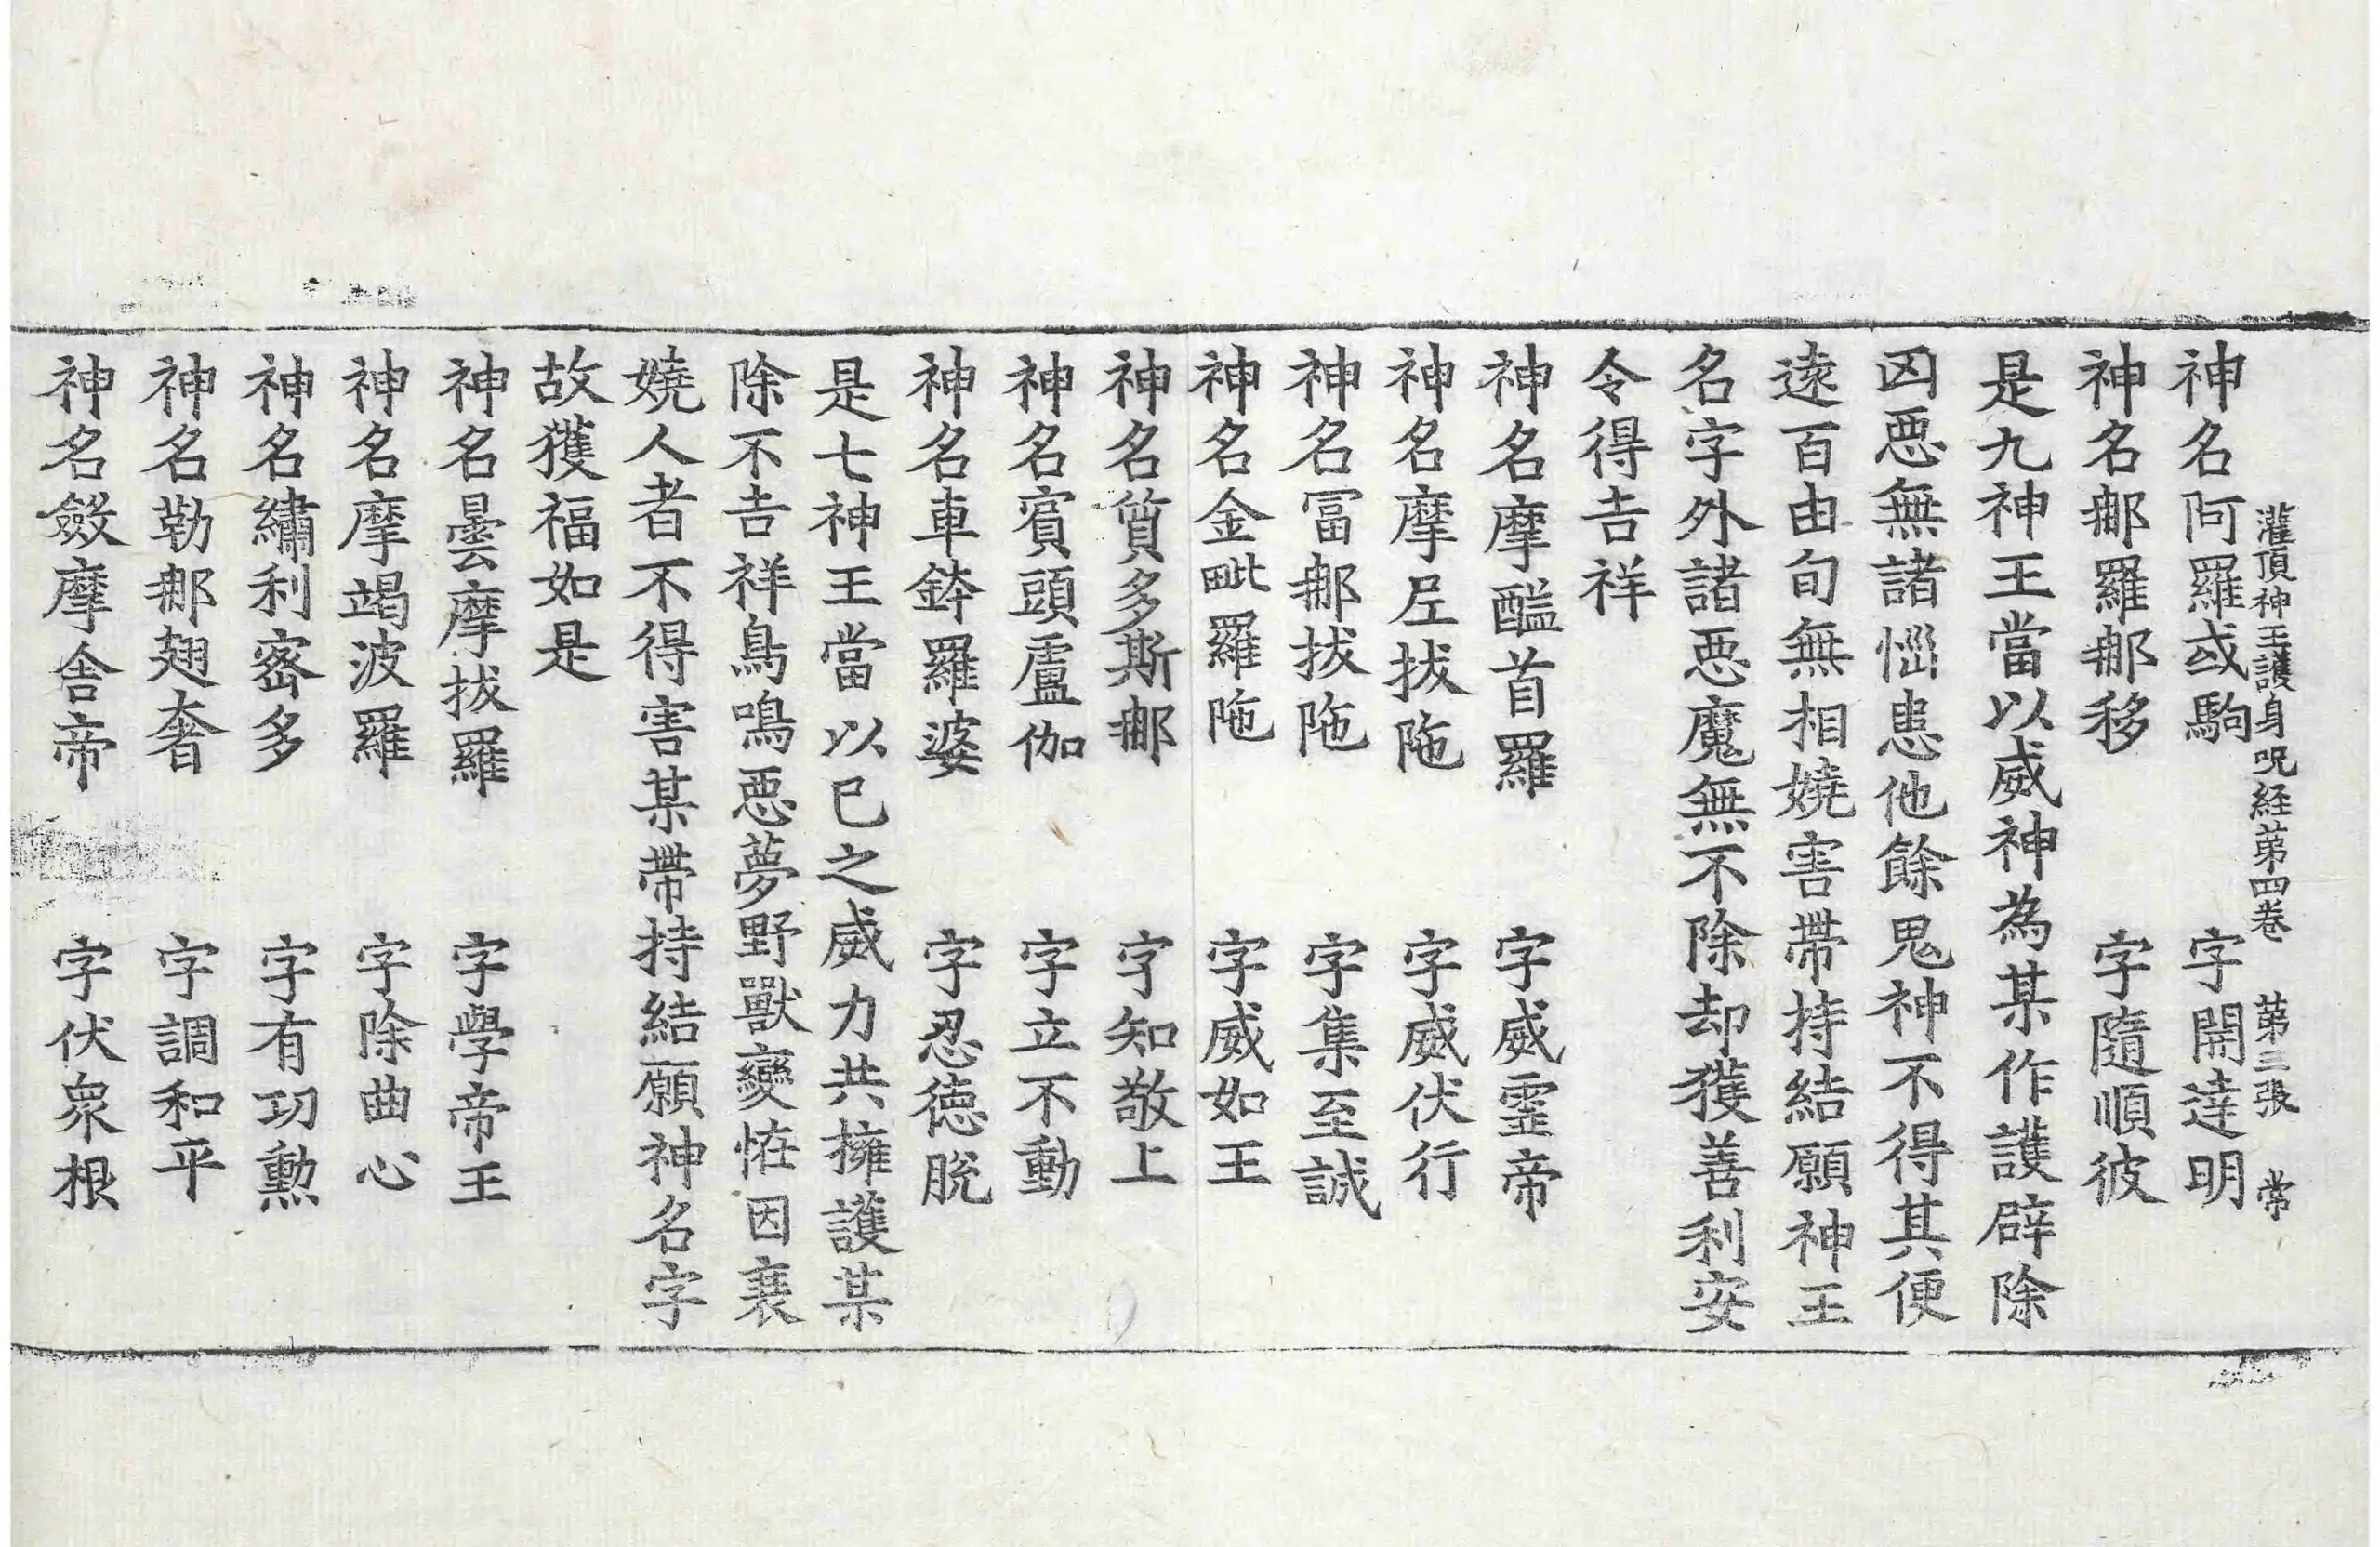 灌頂神王護身呪経苐四巻 苐三張 常
神名阿羅或駒 字開逹明
神名䣘羅䣘移 字隨順彼
是九神王當以威神為某作護辟除
凶惡無諸惱患他餘鬼神不得其便
逺百由旬無相嬈害帶持結願神王
名字外諸惡魔無不除却獲善利安
令得吉祥
神名摩醯首羅 字威靈帝
神名摩𡰱拔陁 字威伏行
神名冨䣘拔陁 字集至誠
神名金毗羅陁 字威如王
神名質多斯䣘 字知敬上
神名賓頭盧伽 字立不動
神名車鉢羅婆 字忍德脫
是七神王當以已之威力共擁護某
除不吉祥鳥鳴惡夢野獸變恠因衰
嬈人者不得害某帶持結願神名字
故獲福如是
神名曇摩拔羅 字學帝王
神名摩竭波羅 字除曲心
神名繡利密多 字有功勳
神名勒䣘翅奢 字調和平
神名斂摩舍帝 字伏衆根